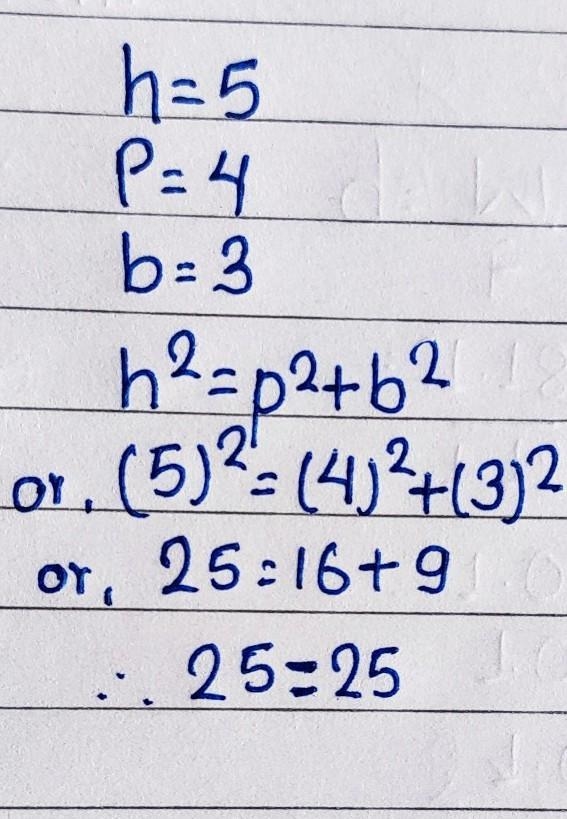 h=5
P=4
b=3
h²=p²+b²
or, (5)²=(4)²+(3)²
or, 25=16+9
∴ 25=25